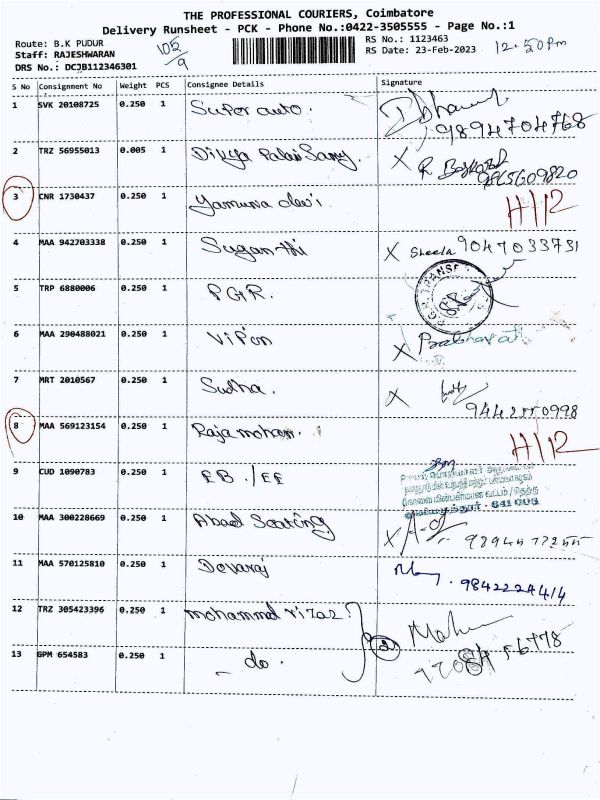 THE PROFESSIONAL COURIERS, Coimbatore
Delivery Runsheet - PCK - Phone No.:0422-3505555 - Page No.:1
Route: B.K PUDUR
Staff: RAJESHWARAN
DRS No.: DCJB112346301
105/9
RS No.: 1123463
RS Date: 23-Feb-2023
12.50pm
S No Consignment No Weight PCS Consignee Details Signature
1 SVK 20108725 0.250 1 Super auto. 9894704768
2 TRZ 56955013 0.005 1 Divya Palani Samy. X R 9865609820
3 CNR 1730437 0.250 1 Yamuna devi H/12
4 MAA 942703338 0.250 1 Suganthi X Sheela 9047033731
5 TRP 6880006 0.250 1 P.G.R.
6 MAA 290488021 0.250 1 Vipin X Prabhavati
7 MRT 2010567 0.250 1 Sudha. X 9442550998
8 MAA 569123154 0.250 1 Raja mohan. H/12
9 CUD 1090783 0.250 1 EB./EE
10 MAA 300228669 0.250 1 Abad Seating X
11 MAA 570125810 0.250 1 Devaraj 9842224414
12 TRZ 305423396 0.250 1 mohammed riyaz
13 GPM 654583 0.250 1 - do. 2